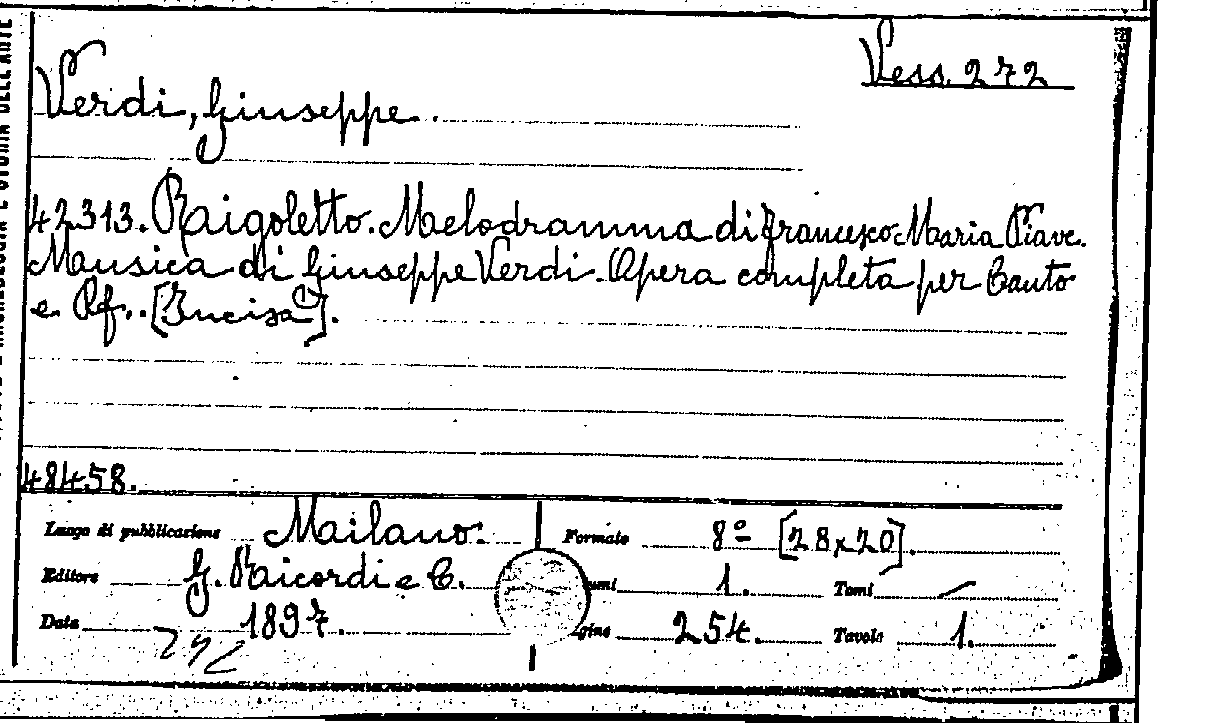 Vess. 272
Verdi, Giuseppe.
42313. Rigoletto. Melodramma di Francesco Maria Piave.
Musica di Giuseppe Verdi. Opera completa per Canto
e Pf.. [Incisa].
48458.
Luogo di pubblicazione Milano. Formato 8º [28x20].
Editore G. Ricordi e C. umi 1. Tomi —
Data 1897. gine 254. Tavole 1.